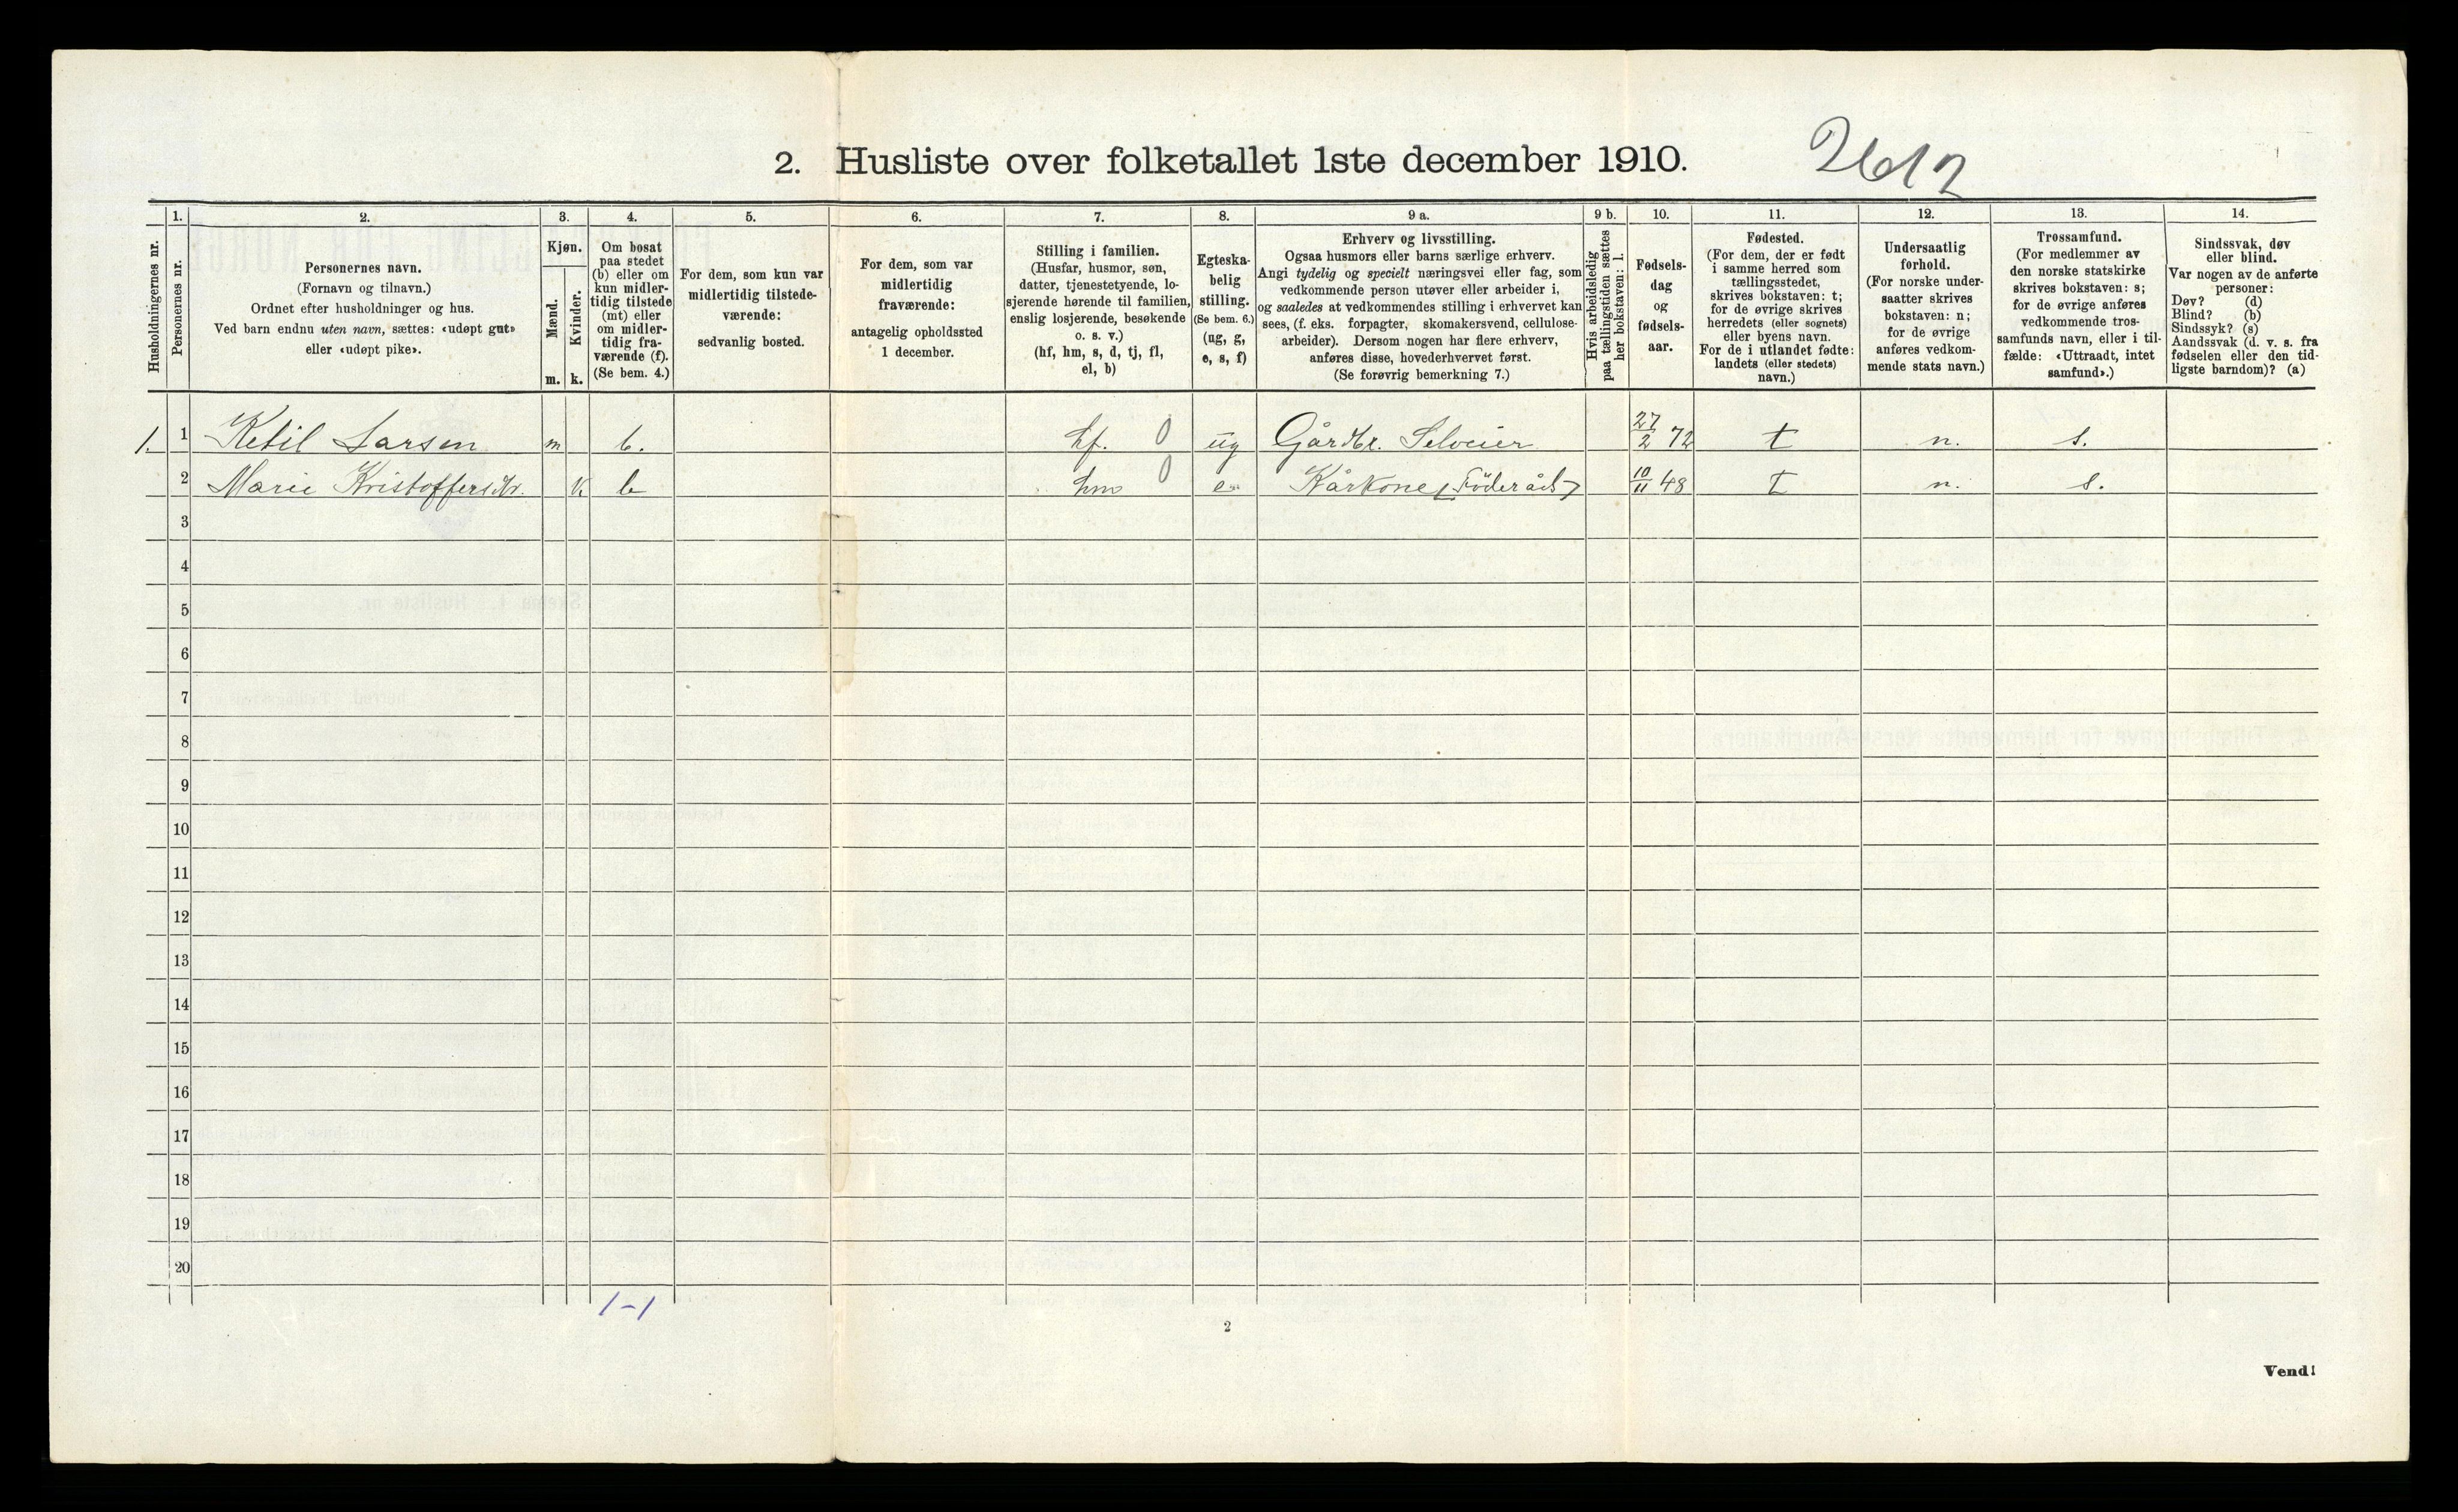 2. Husliste over folketallet 1ste december 1910.
1. 2. 3. 4. 5. 6. 7. 8. 9 a. 9 b. 10. 11. 12. 13. 14.
Husholdningernes nr.
Personernes nr.
Personernes navn.
(Fornavn og tilnavn.)
Ordnet efter husholdninger og hus.
Ved barn endnu uten navn, sættes: «udøpt gut»
eller «udøpt pike».
Kjøn.
Mænd.
Kvinder.
m. k.
Om bosat
paa stedet
(b) eller om
kun midler-
tidig tilstede
(mt) eller
om midler-
tidig fra-
værende (f).
(Se bem. 4.)
For dem, som kun var
midlertidig tilstede-
værende:
sedvanlig bosted.
For dem, som var
midlertidig
fraværende:
antagelig opholdssted
1 december.
Stilling i familien.
(Husfar, husmor, søn,
datter, tjenestetyende, lo-
sjerende hørende til familien,
enslig losjerende, besøkende
o. s. v.)
(hf, hm, s, d, tj, fl,
el, b)
Egteska-
belig
stilling.
(Se bem. 6.)
(ug, g,
e, s, f)
Erhverv og livsstilling.
Ogsaa husmors eller barns særlige erhverv.
Angi tydelig og specielt næringsvei eller fag, som
vedkommende person utøver eller arbeider i,
og saaledes at vedkommendes stilling i erhvervet kan
sees, (f. eks. forpagter, skomakersvend, cellulose-
arbeider). Dersom nogen har flere erhverv,
anføres disse, hovederhvervet først.
(Se forøvrig bemerkning 7.)
Hvis arbeidsledig
paa tællingstiden sættes
her bokstaven: l.
Fødsels-
dag
og
fødsels-
aar.
Fødested.
(For dem, der er født
i samme herred som
tællingsstedet,
skrives bokstaven: t;
for de øvrige skrives
herredets (eller sognets)
eller byens navn.
For de i utlandet fødte:
landets (eller stedets)
navn.)
Undersaatlig
forhold.
(For norske under-
saatter skrives
bokstaven: n;
for de øvrige
anføres vedkom-
mende stats navn.)
Trossamfund.
(For medlemmer av
den norske statskirke
skrives bokstaven: s;
for de øvrige anføres
vedkommende tros-
samfunds navn, eller i til-
fælde: «Uttraadt, intet
samfund».)
Sindssvak, døv
eller blind.
Var nogen av de anførte
personer:
Døv? (d)
Blind? (b)
Sindssyk? (s)
Aandssvak (d. v. s. fra
fødselen eller den tid-
ligste barndom)? (a)
1. 1 Ketil Larsen m b. hf. 0 ug Gårdbr. Selveier 27/2 72 t n. s.
2 Marie Kristoffersdtr. k. b hm 0 e. Kårkone (Föderåd) 10/11 48 t n. s.
3
4
5
6
7
8
9
10
11
12
13
14
15
16
17
18
19
20
1-1
2
Vend!